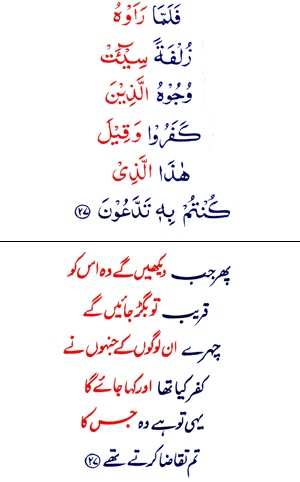 فَلَمَّا رَاَوْهُ
زُلْفَةً سِیْٓـَٔتْ
وُجُوْهُ الَّذِیْنَ
كَفَرُوْا وَقِیْلَ
هٰذَا الَّذِیْ
كُنْتُمْ بِهٖ تَدَّعُوْنَ ﴿۲۷﴾
پھر جب دیکھیں گے وہ اس کو
قریب تو بگڑ جائیں گے
چہرے ان لوگوں کے جنہوں نے
کفر کیا تھا اور کہا جائے گا
یہی تو ہے وہ جس کا
تم تقاضا کرتے تھے ﴿۲۷﴾